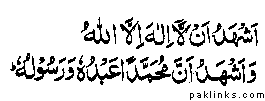 اَشْهَدُ اَنْ لَّا اِلٰهَ اِلَّا اللهُ
وَاَشْهَدُ اَنَّ مُحَمَّدًا عَبْدُهٗ وَرَسُوْلُهٗ
paklinks.com